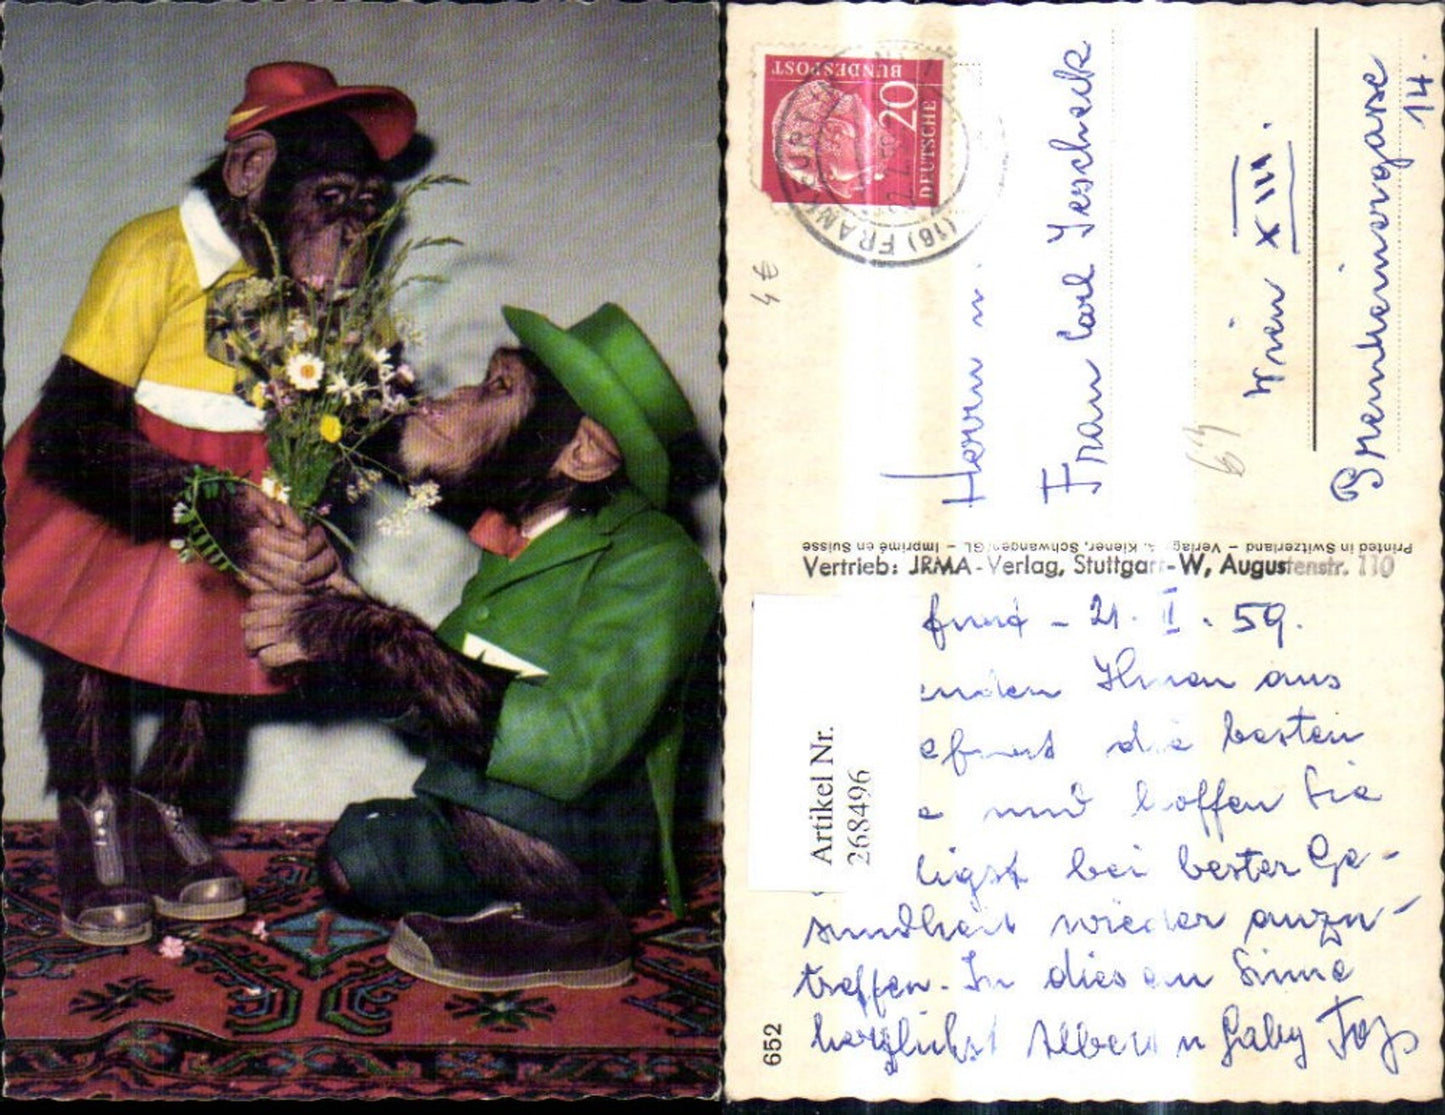 DEUTSCHE
BUNDESPOST
20
(16) FRANKFURT
4€
Herrn u.
Frau Carl Jeschek
Wien XIII.
14.
63
Printed in Switzerland – Verlag Kiener, Schwanger/GL – Imprimé en Suisse
Vertrieb: JRMA-Verlag, Stuttgart-W, Augustenstr. 110
Artikel Nr.
268496
652
furt - 21. II. 59.
enden Ihnen aus
furt die besten
e und hoffen Sie
ligst bei bester Ge-
sundheit wieder anzu-
treffen. In diesem Sinne
herzlichst Albert u Gaby